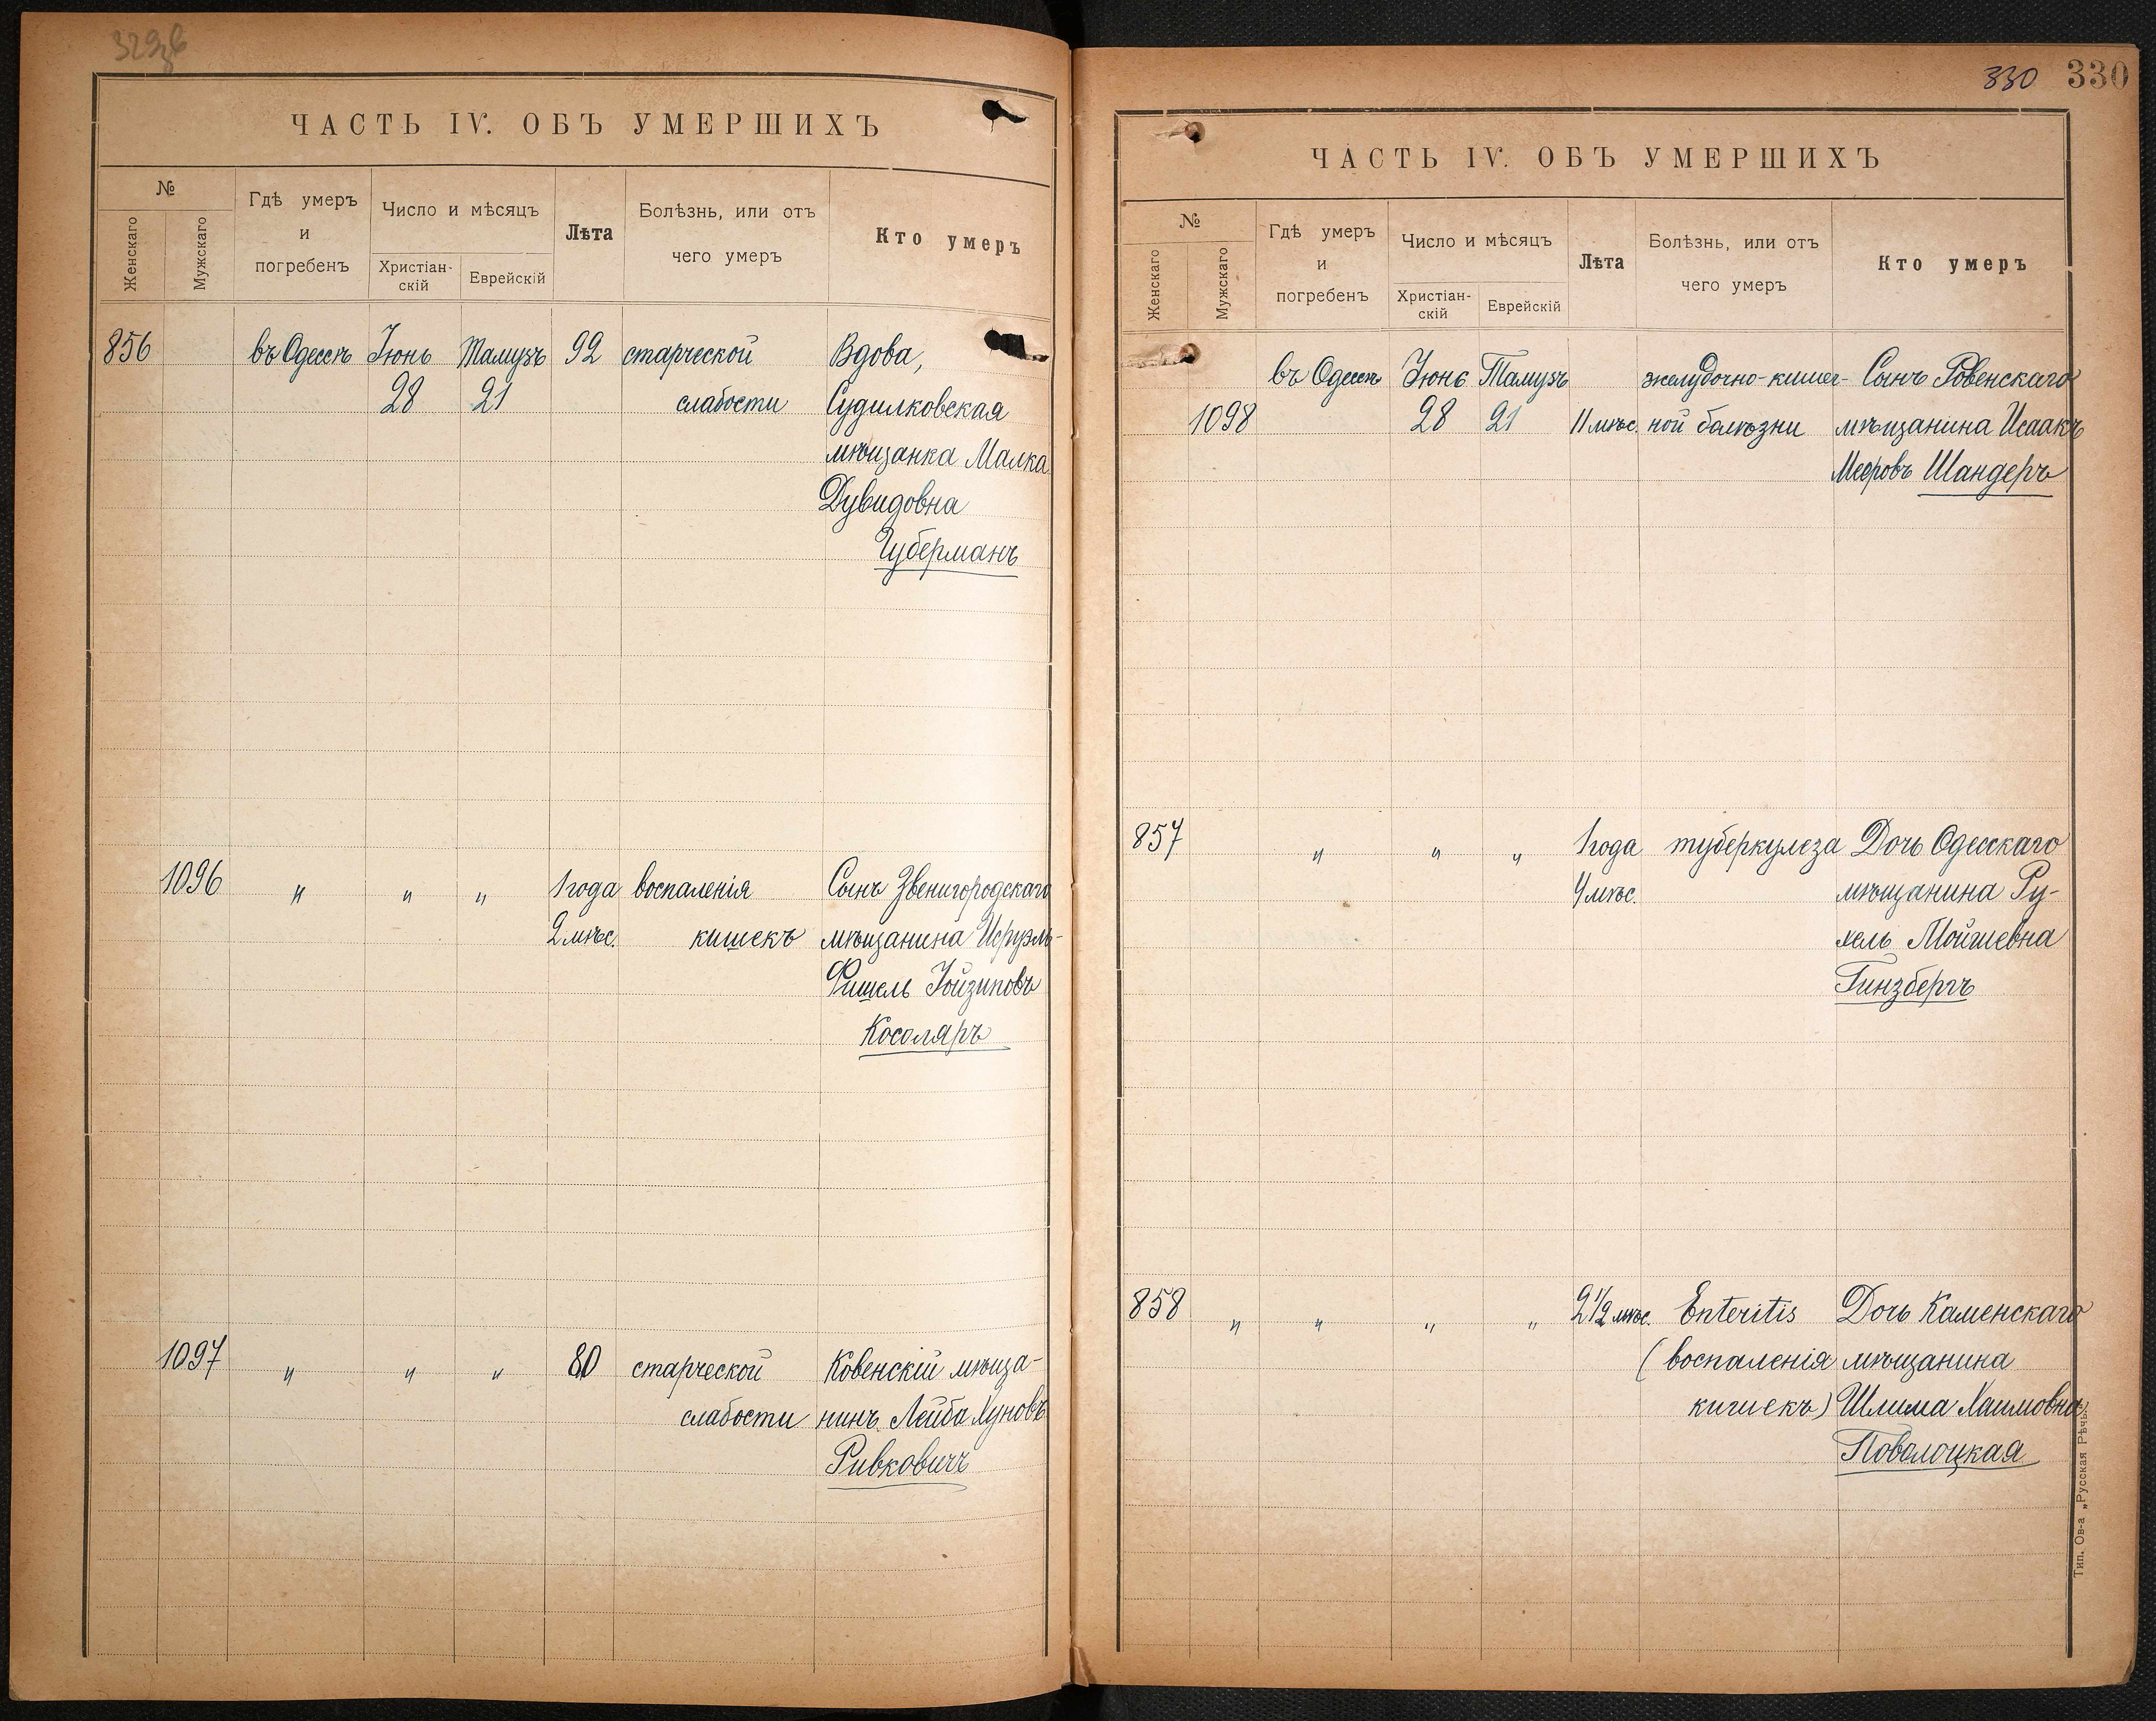 329об
ЧАСТЬ IV. ОБЪ УМЕРШИХЪ
№
Женскаго
Мужскаго
Гдѣ умеръ
и
погребенъ
Число и мѣсяцъ
Христіан-
скій
Еврейскій
Лѣта
Болѣзнь, или отъ
чего умеръ
Кто умеръ
856 въ Одессѣ Іюнь Тамузъ 92 старческой Вдова,
28 21 слабости Судилковская
мѣщанка Малка
Дувидовна
Губерманъ
1096 " " " 1 года воспаленія Сынъ Звенигородскаго
2 мѣс. кишекъ мѣщанина Исруэль-
Фишель Іойзиповъ
Косоляръ
1097 " " " 80 старческой Ковенскій мѣща-
слабости нинъ Лейба Хуновъ
Ривковичъ
330 330
ЧАСТЬ IV. ОБЪ УМЕРШИХЪ
№
Женскаго
Мужскаго
Гдѣ умеръ
и
погребенъ
Число и мѣсяцъ
Христіан-
скій
Еврейскій
Лѣта
Болѣзнь, или отъ
чего умеръ
Кто умеръ
въ Одессѣ Іюнь Тамузъ желудочно-кишеч- Сынъ Ровенскаго
1098 28 21 11 мѣс. ной болѣзни мѣщанина Исаакъ
Мееровъ Шандеръ
857 " " " 1 года туберкулеза Дочь Одесскаго
4 мѣс. мѣщанина Ру-
хель Мойшевна
Гинзбергъ
858 " " " " 2 1/2 мѣс. Enteritis Дочь Каменскаго
(воспаленія мѣщанина
кишекъ) Шлима Хаимовна
Поволоцкая
Тип. Ов-а „Русская Рѣчь".